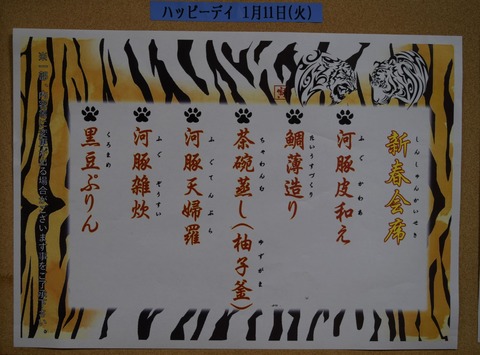 ハッピーデイ 1月11日(火)
新春会席
しんしゅんかいせき
河豚皮和え
ふぐかわあ
鯛薄造り
たいうすづくり
茶碗蒸し(柚子釜)
ちゃわんむ ゆずがま
河豚天婦羅
ふぐてんぷら
河豚雑炊
ふぐぞうすい
黒豆ぷりん
くろまめ
場合がございます事をご了承ください。